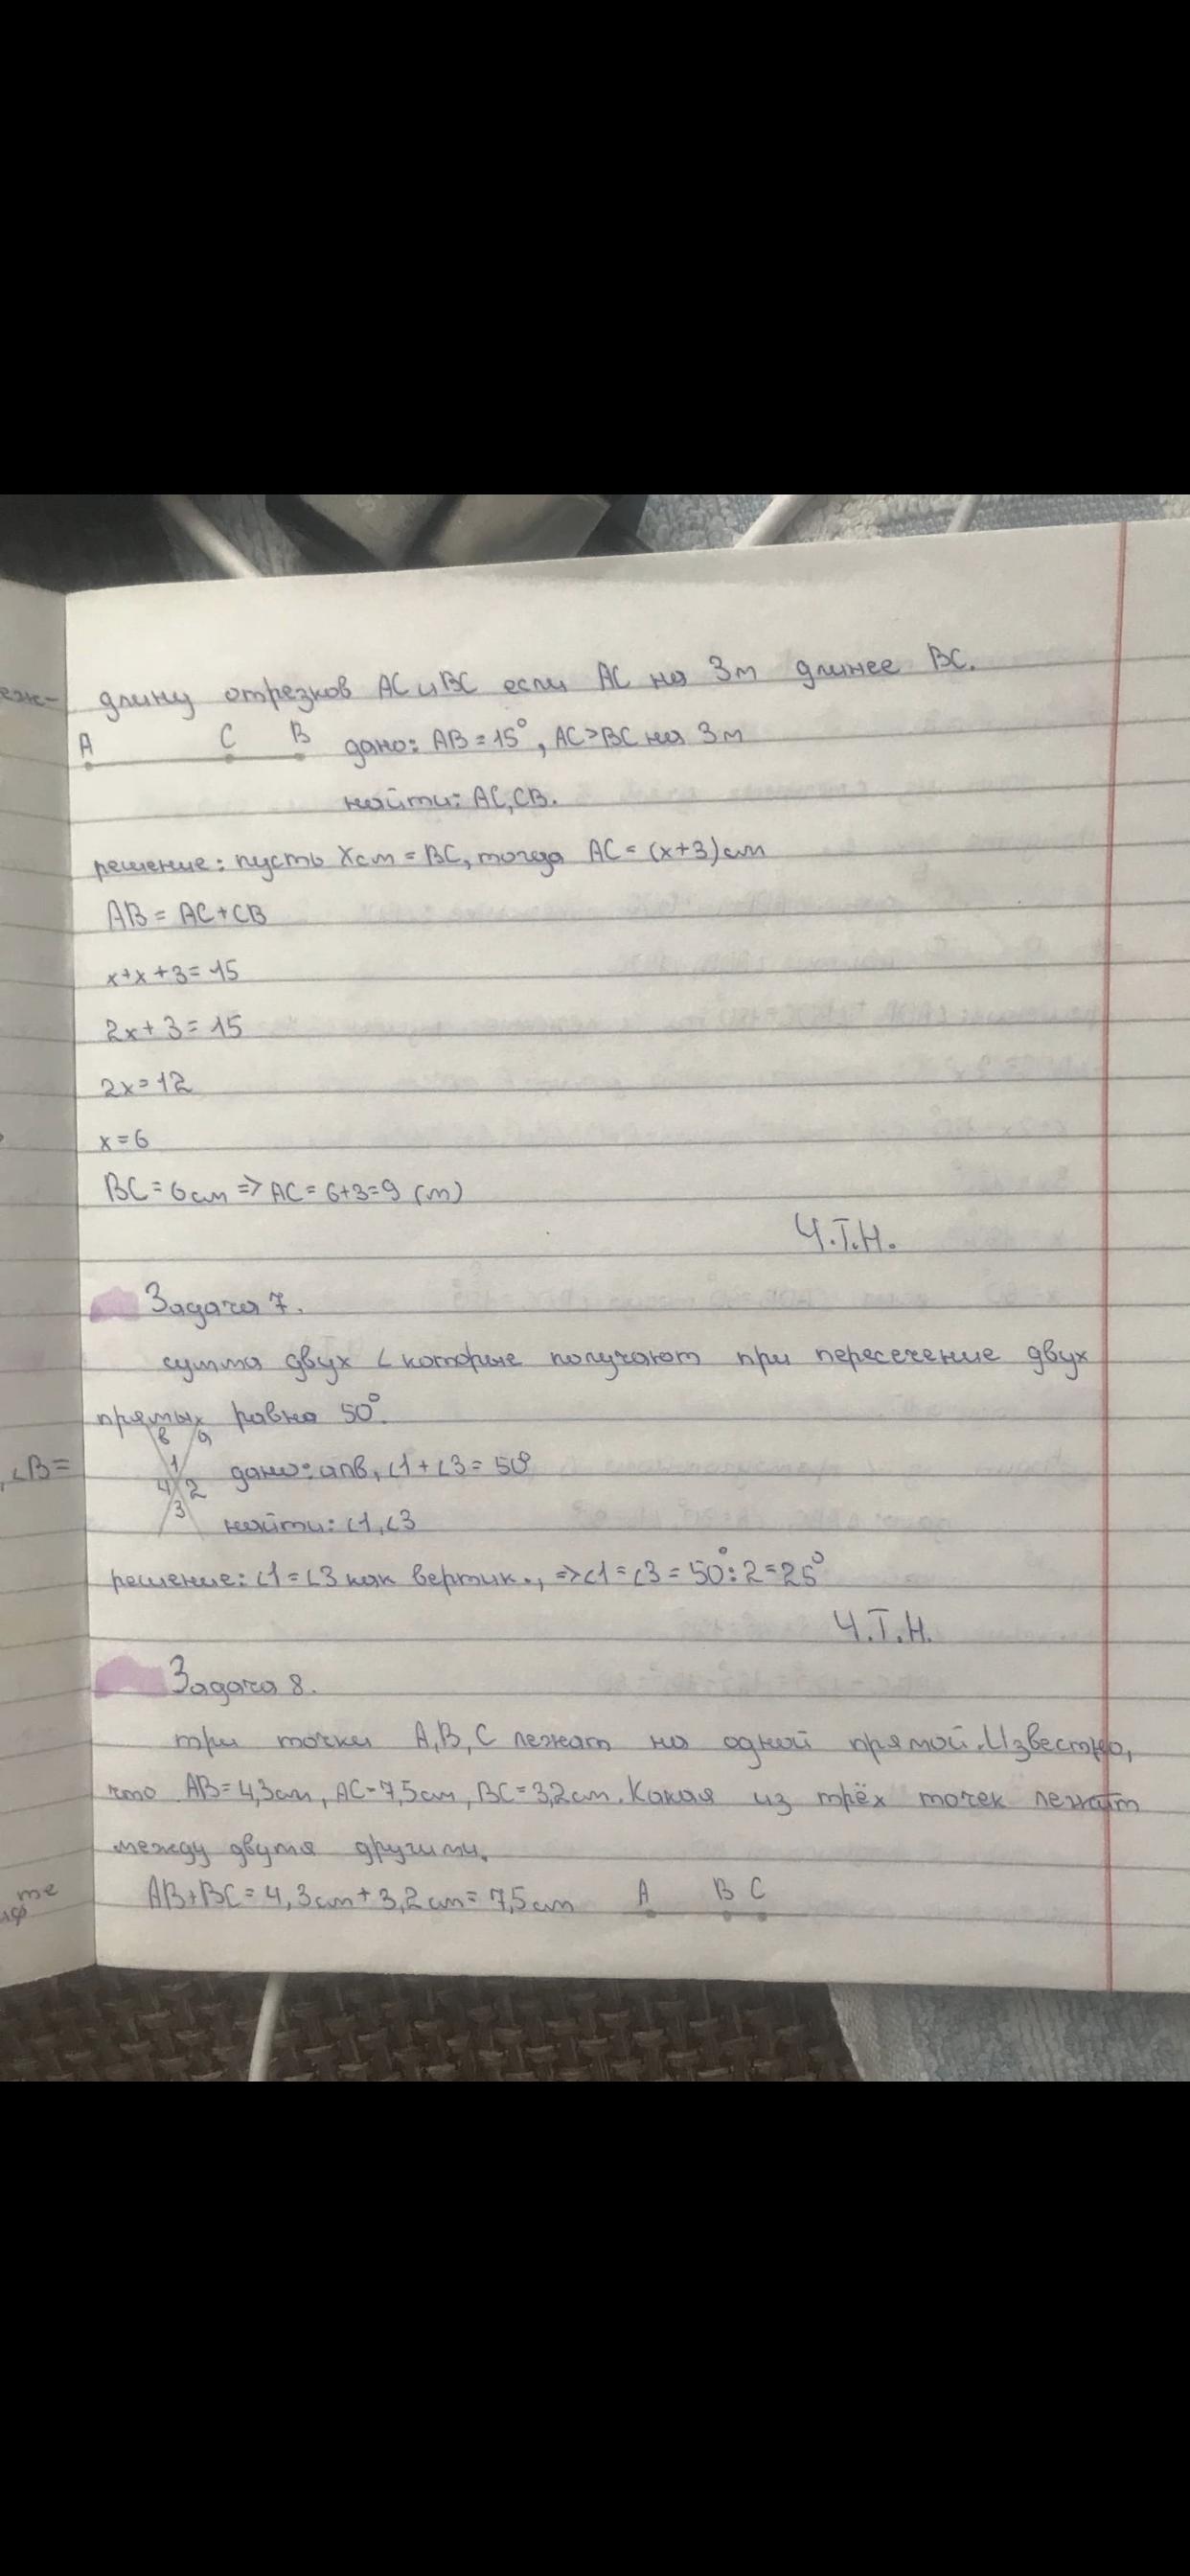 еж-
длину отрезков AC и BC если AC на 3м длинее BC.
A C B дано: AB = 15°, AC>BC на 3м
найти: AC, CB.
решение: пусть Xсм = BC, тогда AC = (x+3)см
AB = AC+CB
x+x+3=15
2x+3=15
2x=12
x=6
BC=6см => AC=6+3=9 (м)
Ч.Т.Н.
Задача 7.
сумма двух ∠ которые получают при пересечение двух
прямых равна 50°.
в а
1
4 2
3
∠B=
дано: a∩в, ∠1+∠3=50°
найти: ∠1, ∠3
решение: ∠1=∠3 как вертик., =>∠1=∠3=50°:2=25°
Ч.Т.Н.
Задача 8.
три точки A, B, C лежат на одной прямой. Известно,
что AB=4,3см, AC=7,5см, BC=3,2см. Какая из трёх точек лежат
между двумя другими.
AB+BC=4,3см+3,2см=7,5см A B C